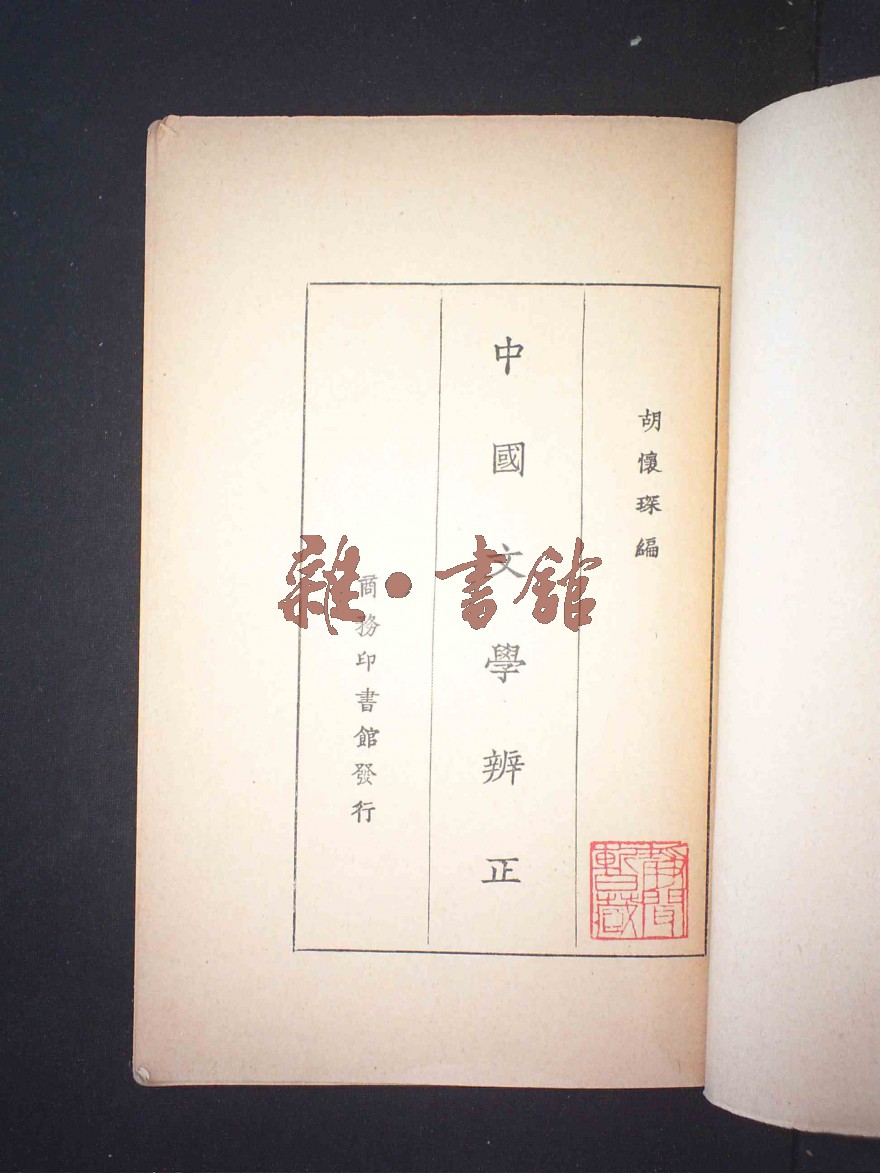 胡懷琛編
中國文學辨正
商務印書館發行
雜·書館
靜閣
暫藏